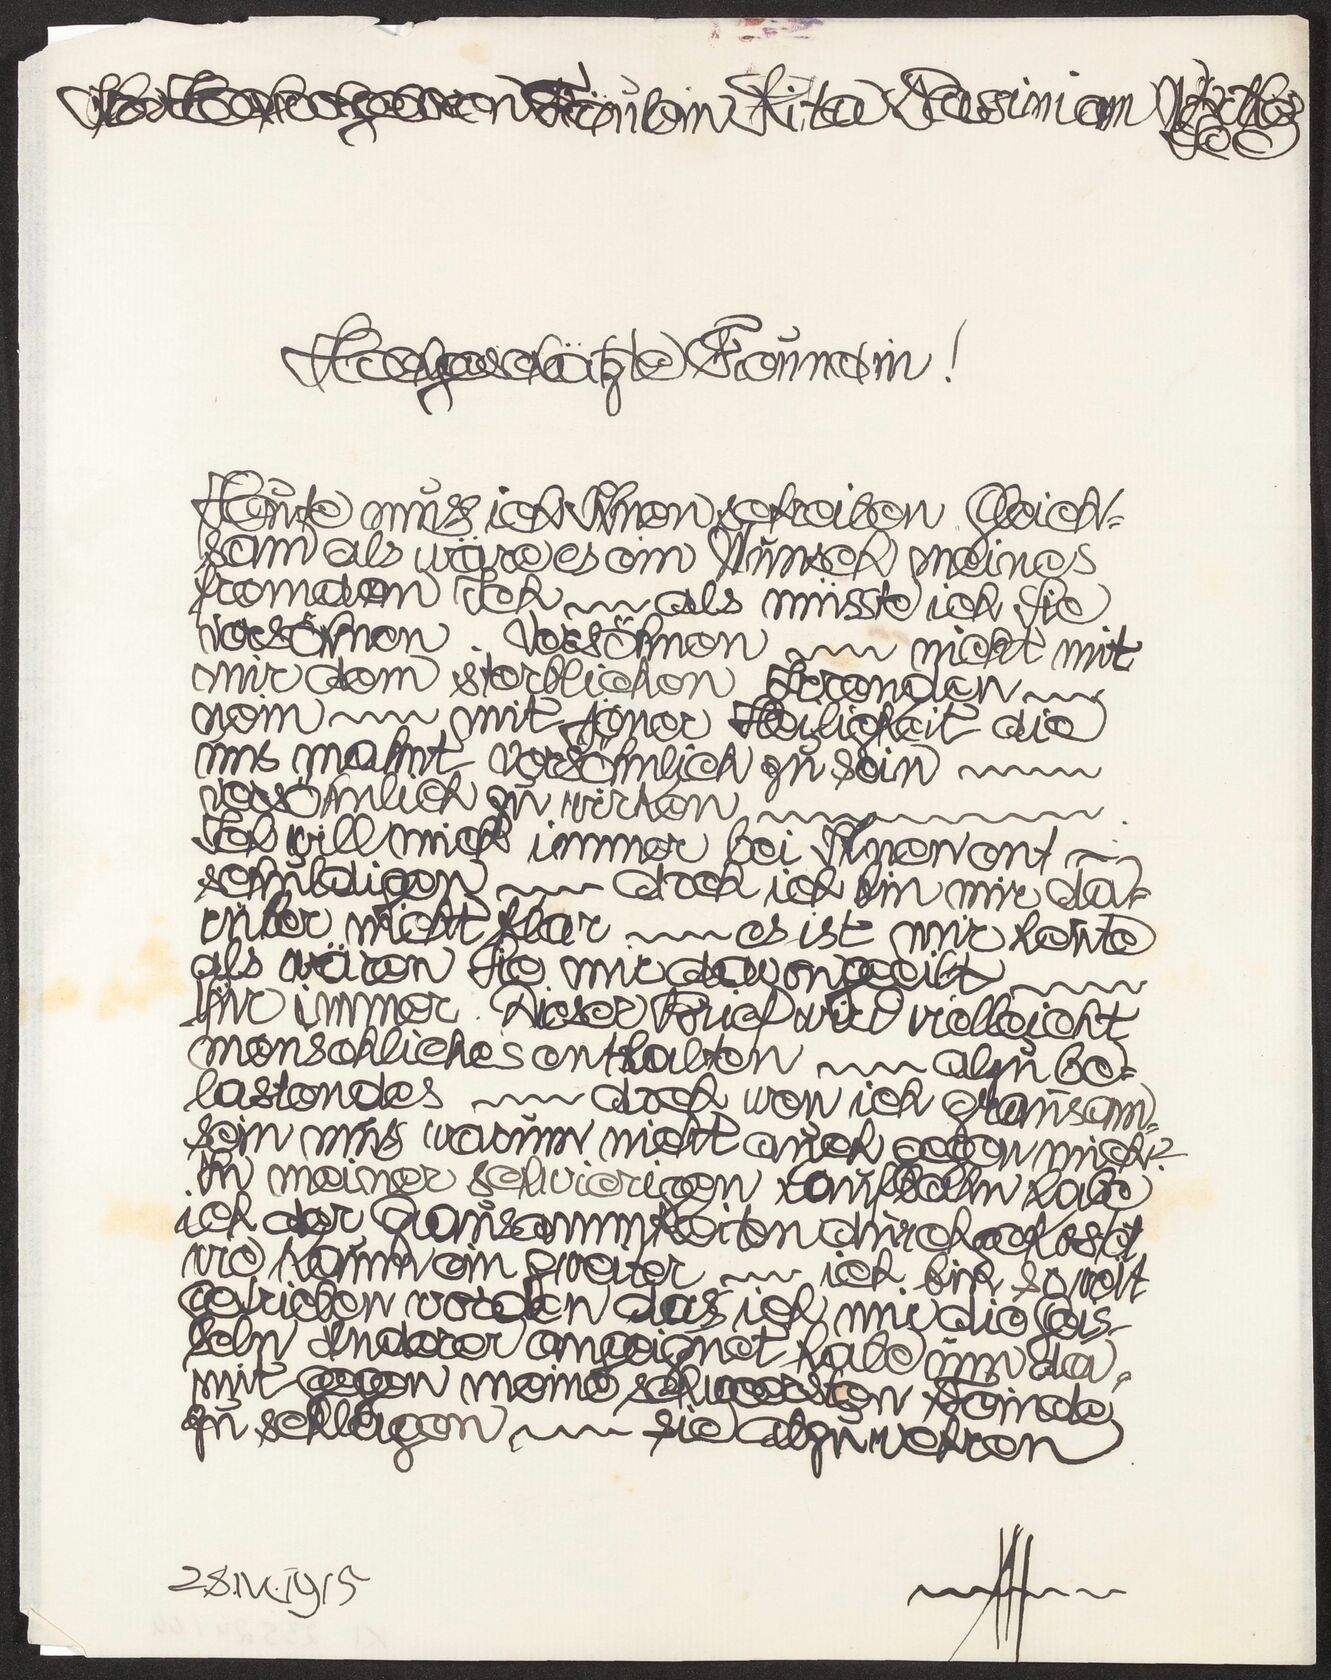 Hochwohlgeboren Fräulein Rita Passini am Wörther
See
Hochgeschätzte Freundin!
Heute muss ich Ihnen schreiben Gleich-
sam als wäre es ein Wunsch meines
fremden Ich als müsste ich Sie
versöhnen. Versöhnen nicht mit
mir dem sterblichen
nein mit jener Heiligkeit die
uns mahnt versöhnlich zu sein
versöhnlich zu wirken.
Ich will mich immer bei Ihnen ent-
schuldigen doch ich bin mir da-
rüber nicht klar es ist mir heute
als wären Sie mir davongeeilt
für immer. Dieser Brief wird vielleicht
menschliches enthalten alzu be-
lastendes doch wen ich grausam
sein muss warum nicht auch gegen mich?
In meiner schwierigen Laufbahn habe
ich der Grausammkeiten durchgekostet
wie kaum ein zweiter ich bin so weit
getrieben worden das ich mir die Geis-
seln Anderer angeignet habe um da-
mit gegen meine schwersten Feinde
zu schlagen sie abzuwehren
28.IV.1915